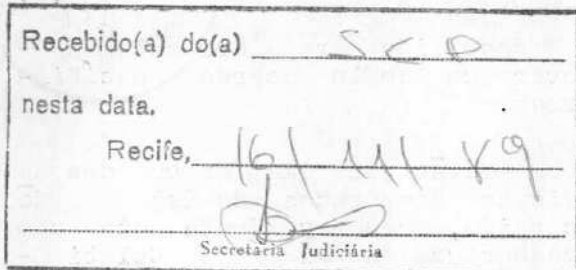 Recebido(a) do(a) SCP
nesta data.
Recife, 16/ 11/ 89
Secretária Judiciária